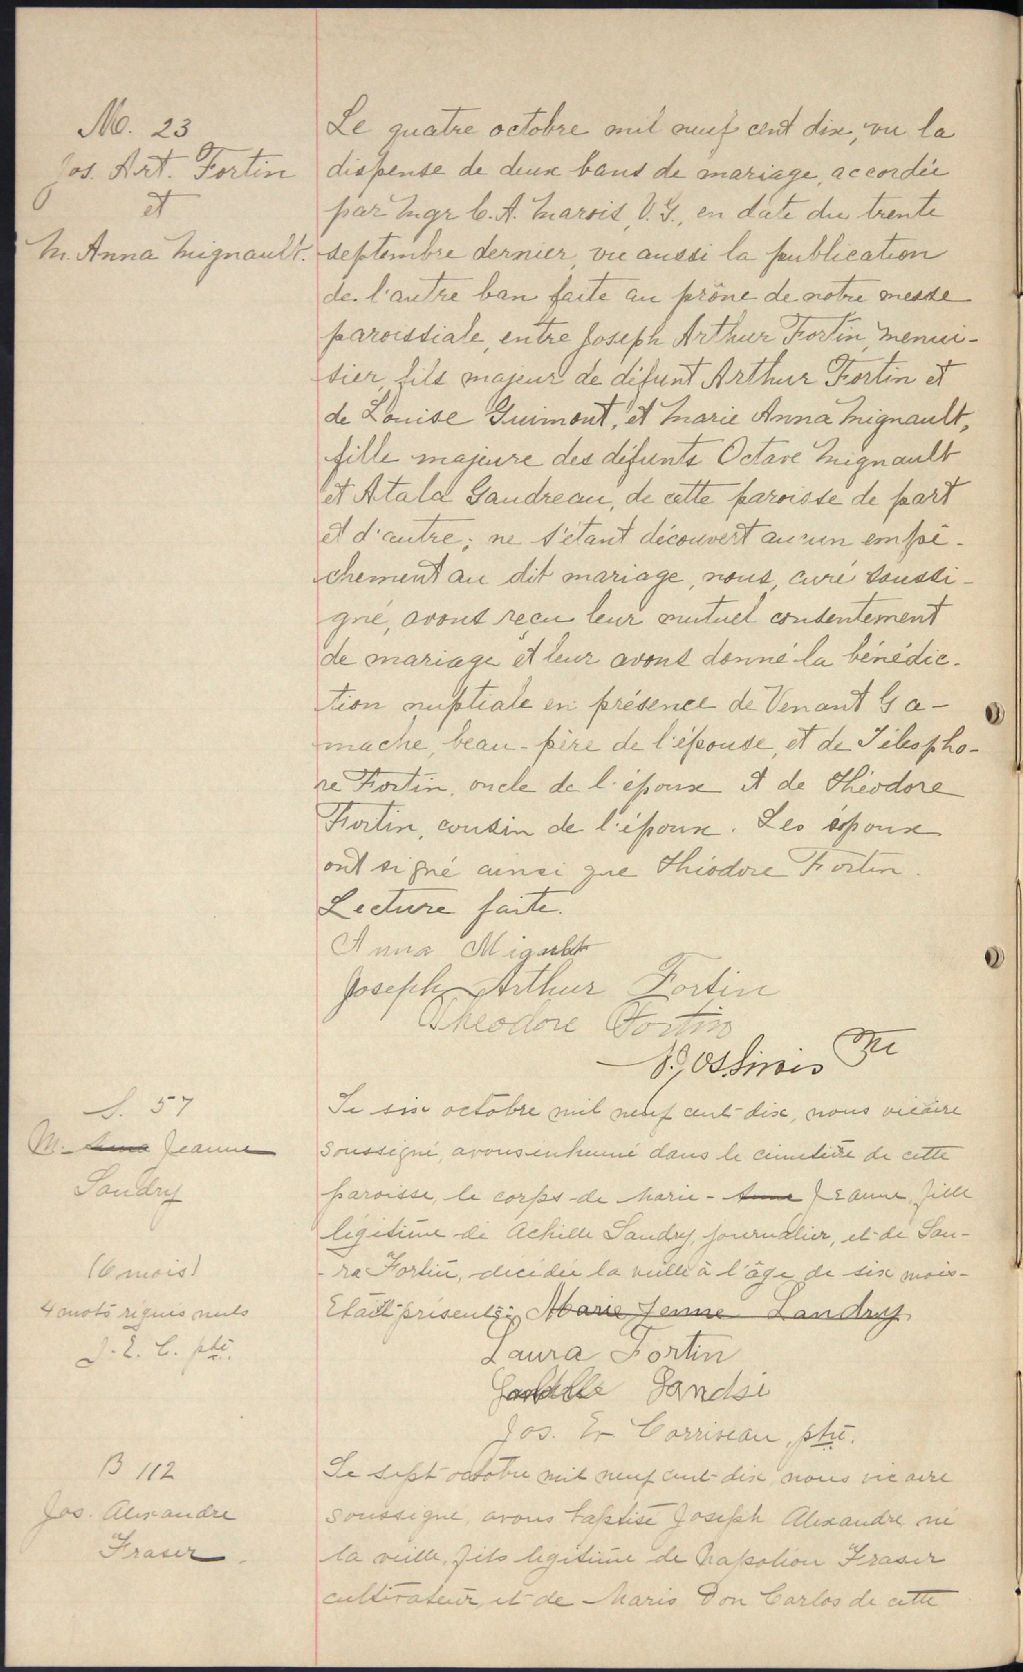 M. 23
Jos. Art. Fortin
et
M. Anna Mignault.
Le quatre octobre mil neuf cent dix, vu la
dispense de deux bans de mariage, accordée
par Mgr C. A. Marois, V. G., en date du trente
septembre dernier, vu aussi la publication
de l'autre ban faite au prône de notre messe
paroissiale, entre Joseph Arthur Fortin, menui-
sier, fils majeur de défunt Arthur Fortin et
de Louise Guimont, et Marie Anna Mignault,
fille majeure des défunts Octave Mignault
et Atala Gaudreau, de cette paroisse de part
et d'autre; ne s'étant découvert aucun empê-
chement au dit mariage, nous, curé soussi-
gné, avons reçu leur mutuel consentement
de mariage et leur avons donné la bénédic-
tion nuptiale en présence de Venant Ga-
mache, beau-père de l'épouse, et de Télespho-
re Fortin, oncle de l'époux et de Théodore
Fortin, cousin de l'époux. Les époux
ont signé ainsi que Théodore Fortin.
Lecture faite.
Anna Mignult
Joseph Arthur Fortin
Theodore Fortin
Sirois Ptre
S. 57
M. Anna Jeanne
Landry
(6 mois)
4 mots rayés nuls
J. E. C. ptre.
Le six octobre mil neuf cent dix, nous vicaire
soussigné, avons inhumé dans le cimetière de cette
paroisse, le corps de Marie-Anna Jeanne, fille
légitime de Achille Landry, journalier, et de Lau-
-ra Fortin, décédée la veille à l'âge de six mois-
Etait présents: Marie Jenne Landry
Laura Fortin
Landri
Jos. E. Corriveau, ptre.
B 112
Jos. Alexandre
Fraser
Le sept octobre mil neuf cent dix nous vicaire
soussigné, avons baptisé Joseph Alexandre né
la veille, fils légitime de Napoléon Fraser
cultivateur, et de Marie Don Carlos de cette